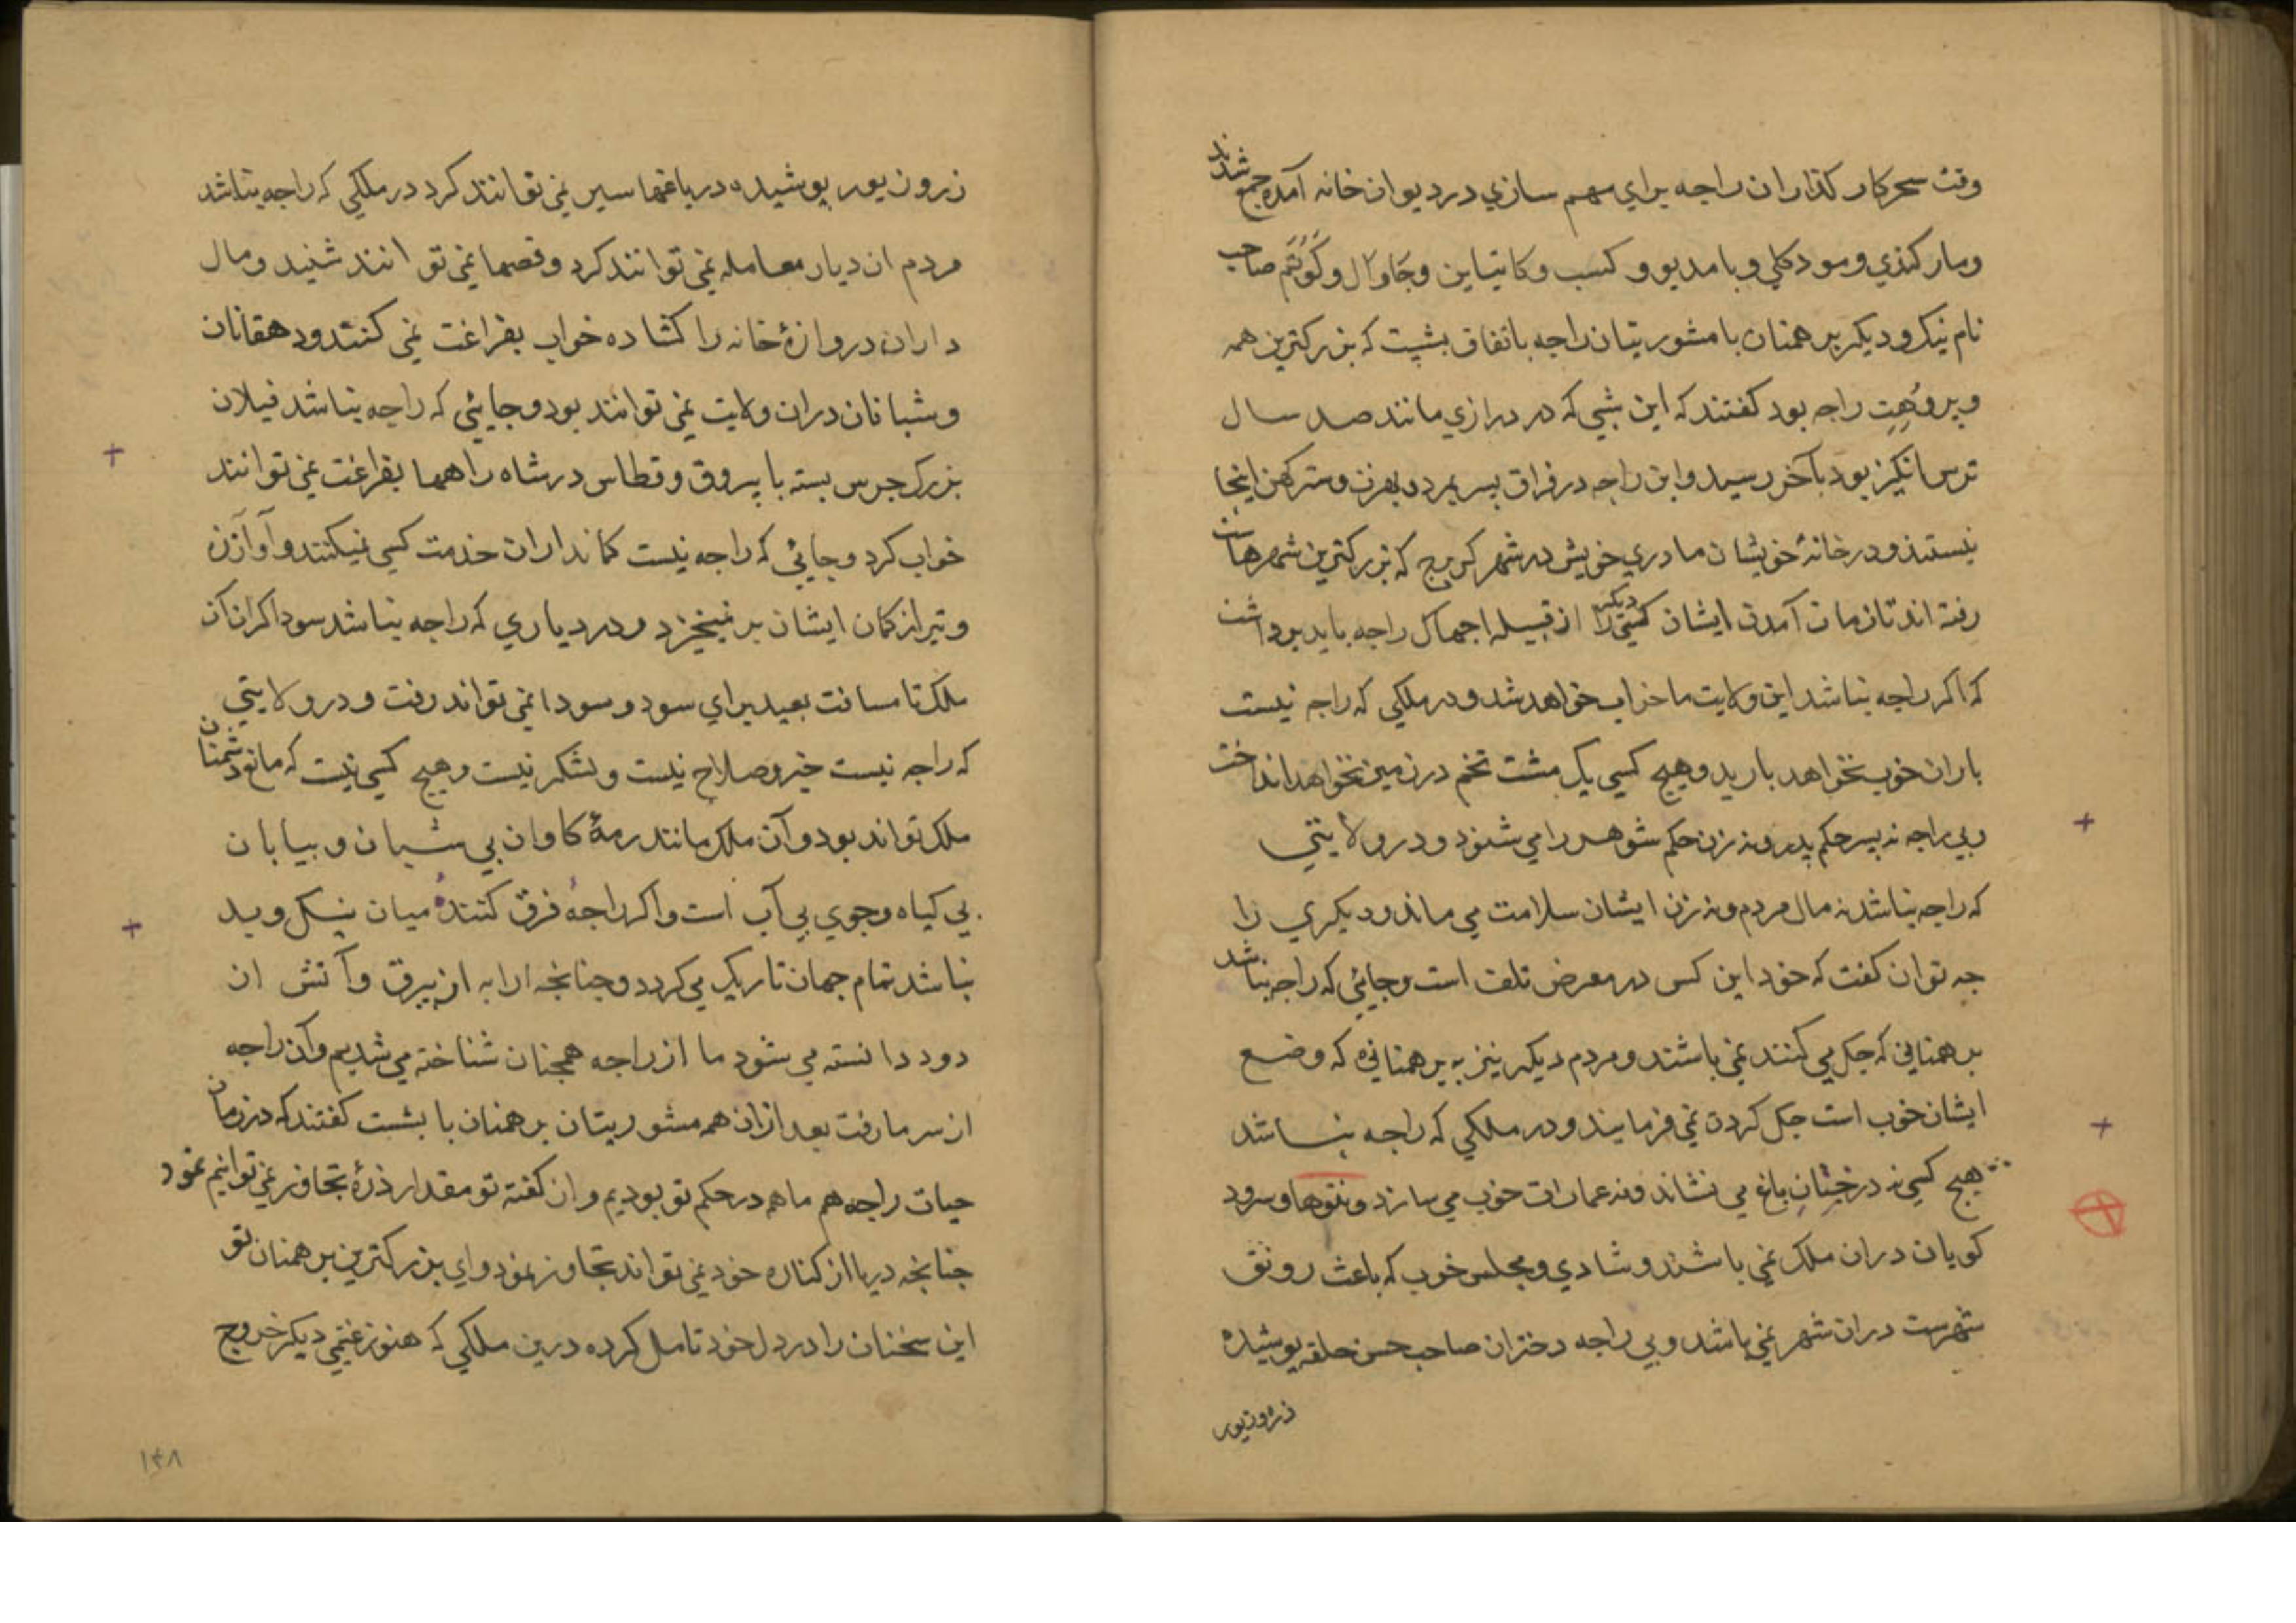 وقت سحر کار کذاران راجه برای مهم سازی در دیوان خانه آمده جمع شدند
و مارکندی و مودکلی و بامدیو و کسب و کاتیاین و جاوال و کوتم صاحب
نام نیک و دیکر برهمنان با مشوریتان راجه باتفاق بشپت که بزرکترین همه
و بروهت راجه بود کفتند که این شبی که در درازی مانند صد سال
ترس انکیز بود بآخر رسید و این راجه در فراق پسر بمرد و بهرت و سترکهن اینجا
نیستند و در خانهٔ خویشان مادری خویش در شهر کربرج که بزرکترین شهرهاست
رفته اند تا زمان آمدن ایشان کسی دیکر را از قبیله اجهاک راجه باید برداشت
که اکر راجه نباشد این ولایت ما خراب خواهد شد و در ملکی که راجه نیست
باران خوب نخواهد بارید و هیچ کسی یک مشت تخم در زمین نخواهد انداخت
و بی راجه نه پسر حکم پدر و نه زن حکم شوهر را می شنود و در ولایتی
که راجه نباشد نه مال مردم و نه زن ایشان سلامت می ماند و دیکری را
چه توان کفت که خود این کس در معرض تلف است و جائی که راجه نباشد
برهمنانی که جک می کنند نمی باشند و مردم دیکر نیز به برهمنانی که وضع
ایشان خوب است جک کردن نمی فرمایند و در ملکی که راجه نباشد
هیچ کسی نه درختان باغ می نشاند و نه عمارات خوب می سازد و نتوها و سرود
کویان دران ملک نمی باشند و شادی و مجلس خوب که باعث رونق
شهرست دران شهر نمی باشد و بی راجه دختران صاحب حسن حلقه پوشیده
زر و زیور
زر و زیور پوشیده در باغها سیر نمی توانند کرد در ملکی که راجه نباشد
مردم ان دیار معامله نمی توانند کرد و قصها نمی توانند شنید و مال
داران دروازهٔ خانه را کشاده خواب بفراغت نمی کنند و دهقانان
و شبانان دران ولایت نمی توانند بود و جایئی که راجه نباشد فیلان
بزرک جرس بسته با یروق و قطاس در شاه راهها بفراغت نمی توانند
خواب کرد و جائی که راجه نیست کمانداران خدمت کسی نمیکنند و آواز زه
و تیر از کمان ایشان بر نمیخیزد و در دیاری که راجه نباشد سوداکران آن
ملک تا مسافت بعید برای سود و سودا نمی تواند رفت و در ولایتی
که راجه نیست خیر و صلاح نیست و لشکر نیست و هیچ کسی نیست که مانع دشمنان
ملک تواند بود و آن ملک مانند رمهٔ کاوان بی شبان و بیابان
بی کیاه و جوی بی آب است و اکر راجه فرق کننده میان نیک و بد
نباشد تمام جهان تاریک می کردد و چنانچه ارابه از بیرق و آتش از
دود دانسته می شود ما از راجه همچنان شناخته می شدیم و آن راجه
از سر ما رفت بعد ازان همه مشوریتان برهمنان با بشست کفتند که در زمان
حیات راجه هم ما همه در حکم تو بودیم و از کفته تو مقدار ذرهٔ تجاوز نمی توانیم نمود
چنانچه دریا از کناره خود نمی تواند تجاوز نمود و ای بزرکترین برهمنان تو
این سخنان را در دل خود تامل کرده درین ملکی که هنوز غنیمی دیکر خروج
۱۴۸